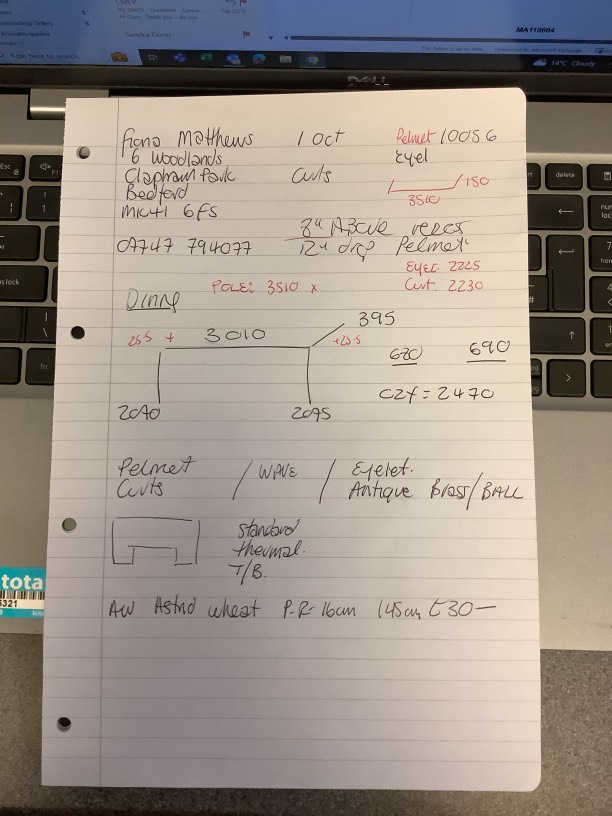 MA110684
14°C Cloudy
DELL
Fiona Matthews 1 Oct Pelmet 10056
6 Woodlands Eyel
Clapham Park Curts 150
Bedford 3510
MK41 6FS
8" Above recess
07747 794077 12" drop Pelmet
Eyel. 2225
Pole: 3510 x Curt. 2230
Dining
255 + 3010 395
+255
680 690
2090 2095 C2f = 2470
Pelmet / WAVE / Eyelet.
Curts Antique Brass/BALL
Standard
thermal.
T/B.
AW Astrid wheat P-R- 16cm 145cm £30—
tota
5321